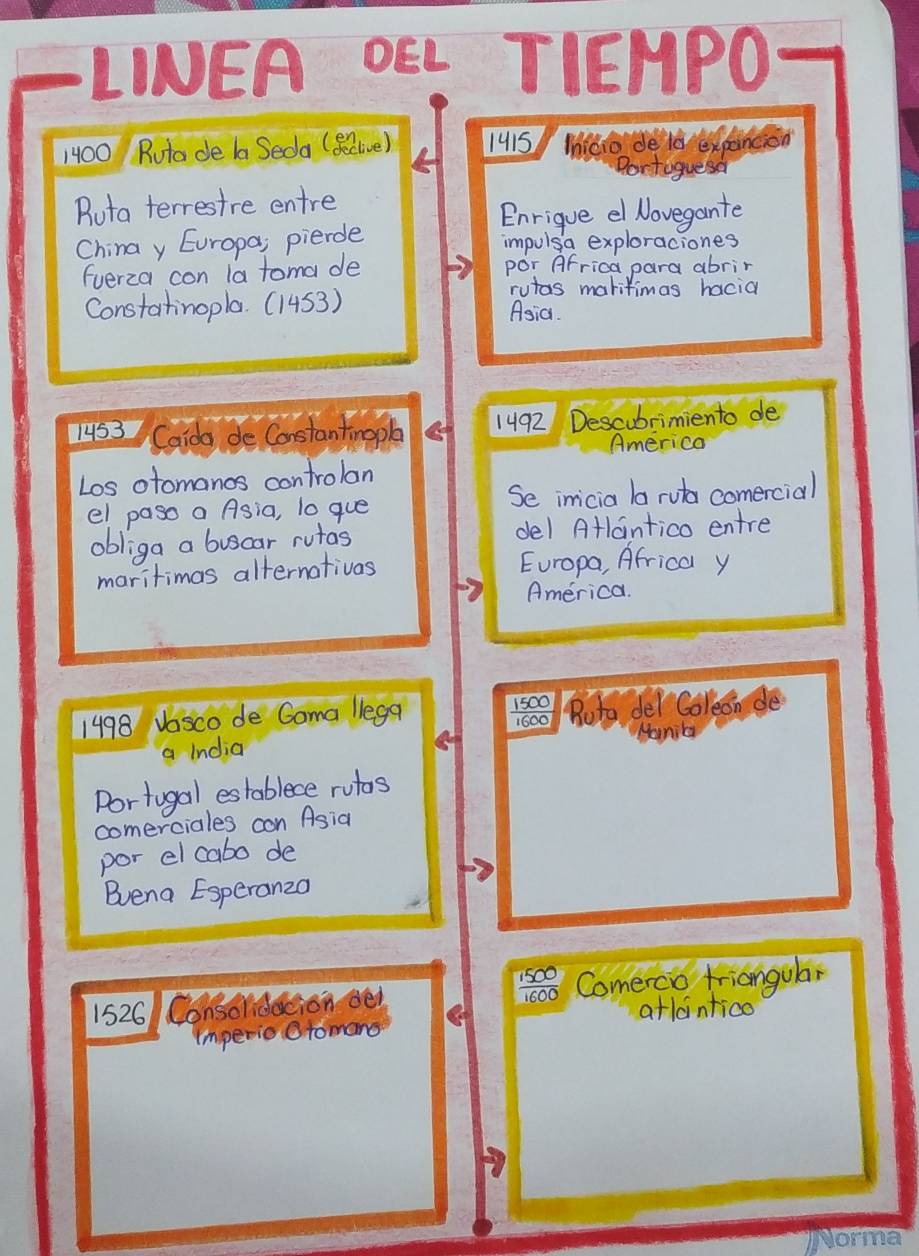 LINEA DEL TIEMPO
1400 Ruta de la Seda (en declive)
Ruta terrestre entre
China y Europa; pierde
fuerza con la toma de
Constatinopla. (1453)
1415 Inicio de la expanción
Portuguesa
Enrique el Novegante
impulsa exploraciones
por Africa para abrir
rutas maritimas hacia
Asia.
1453 Caída de Constantinopla
Los otomanos controlan
el paso a Asia, lo que
obliga a buscar rutas
marítimas alternativas
1492 Descubrimiento de
América
Se imicia la ruta comercial
del Atlántico entre
Europa, África y
América.
1498 Vasco de Gama llega
a India
Portugal establece rutas
comerciales con Asia
por el cabo de
Buena Esperanza
1500
1600 Ruta del Galeón de
Manila
1526 Consolidación del
imperio Otomano
1500
1600 Comercio triangular
atlántico
Norma